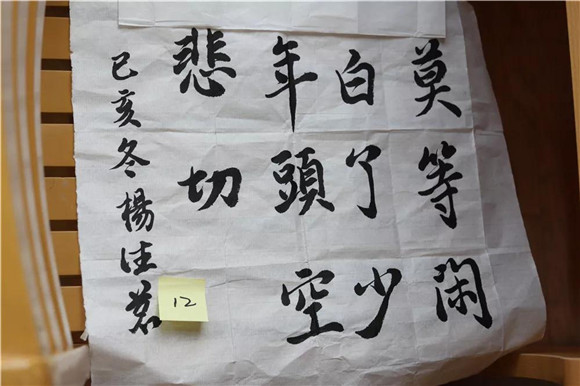 莫等閑
白了少
年頭空
悲切
己亥冬楊佳
12